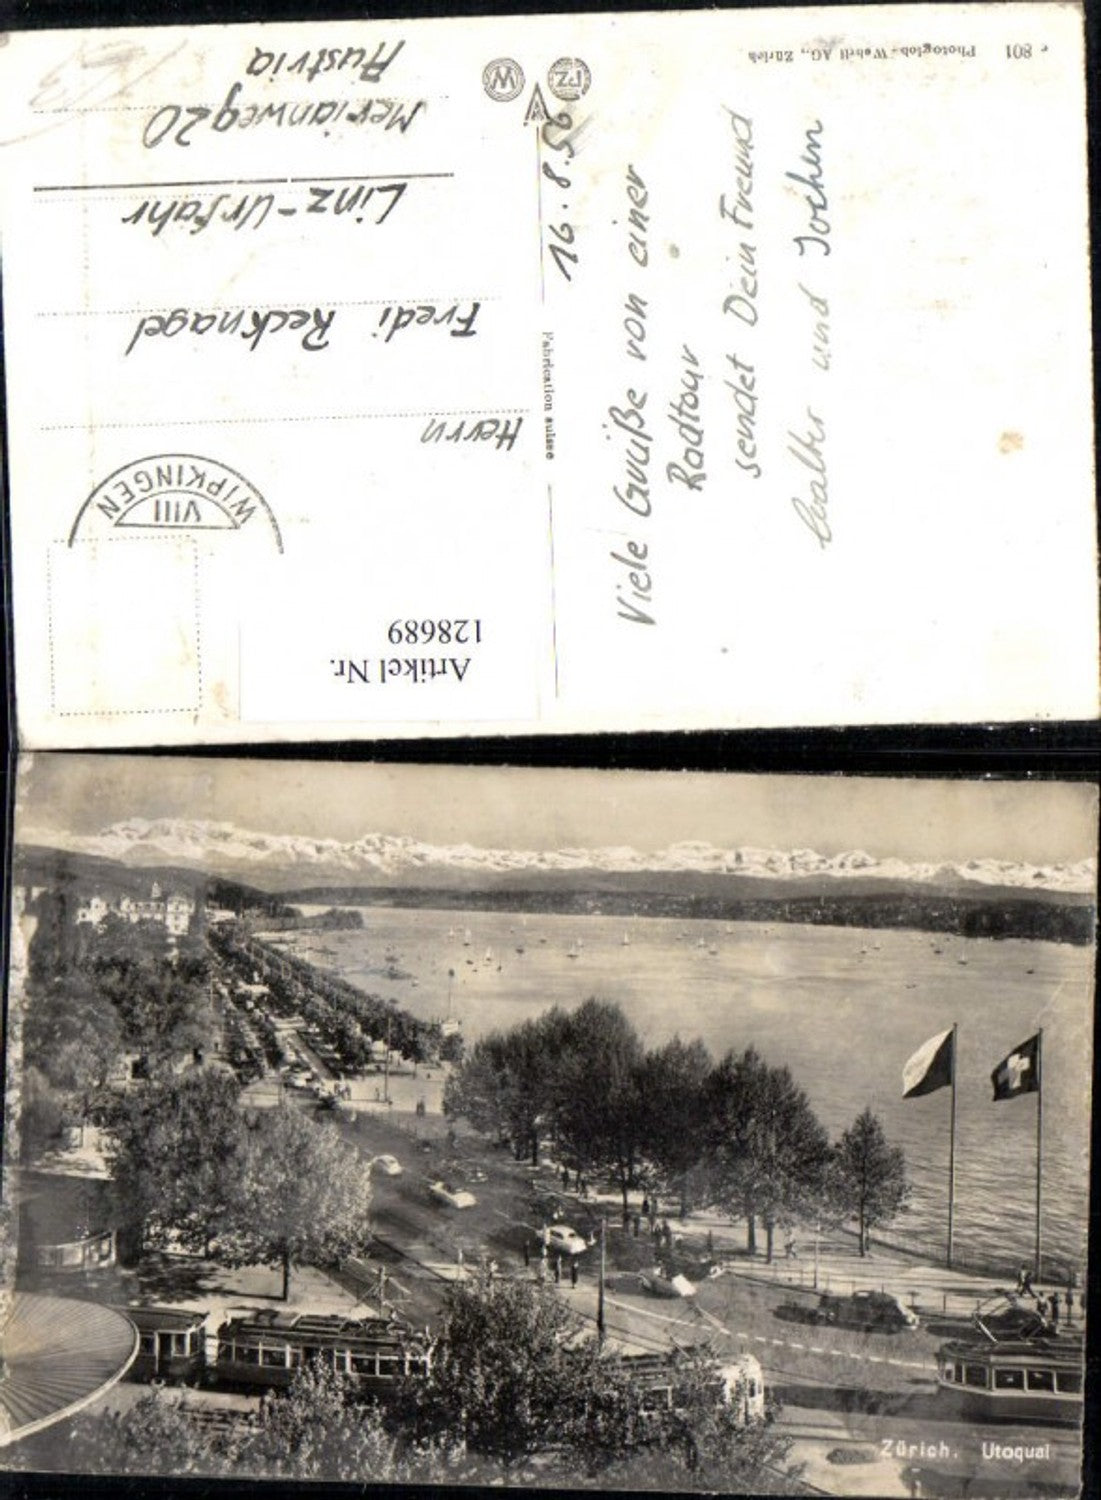 Artikel Nr.
128689
VIII
WIPKINGEN
Herrn
Fredi Recknagel
Linz-Urfahr
Merianweg 20
Austria
Fabrication suisse
W
PZ
16.8.56
Viele Grüße von einer
Radtour
sendet Dein Freund
Walter und Jochen
Photoglob-Wehrli AG., Zürich
801
Zürich. Utoquai